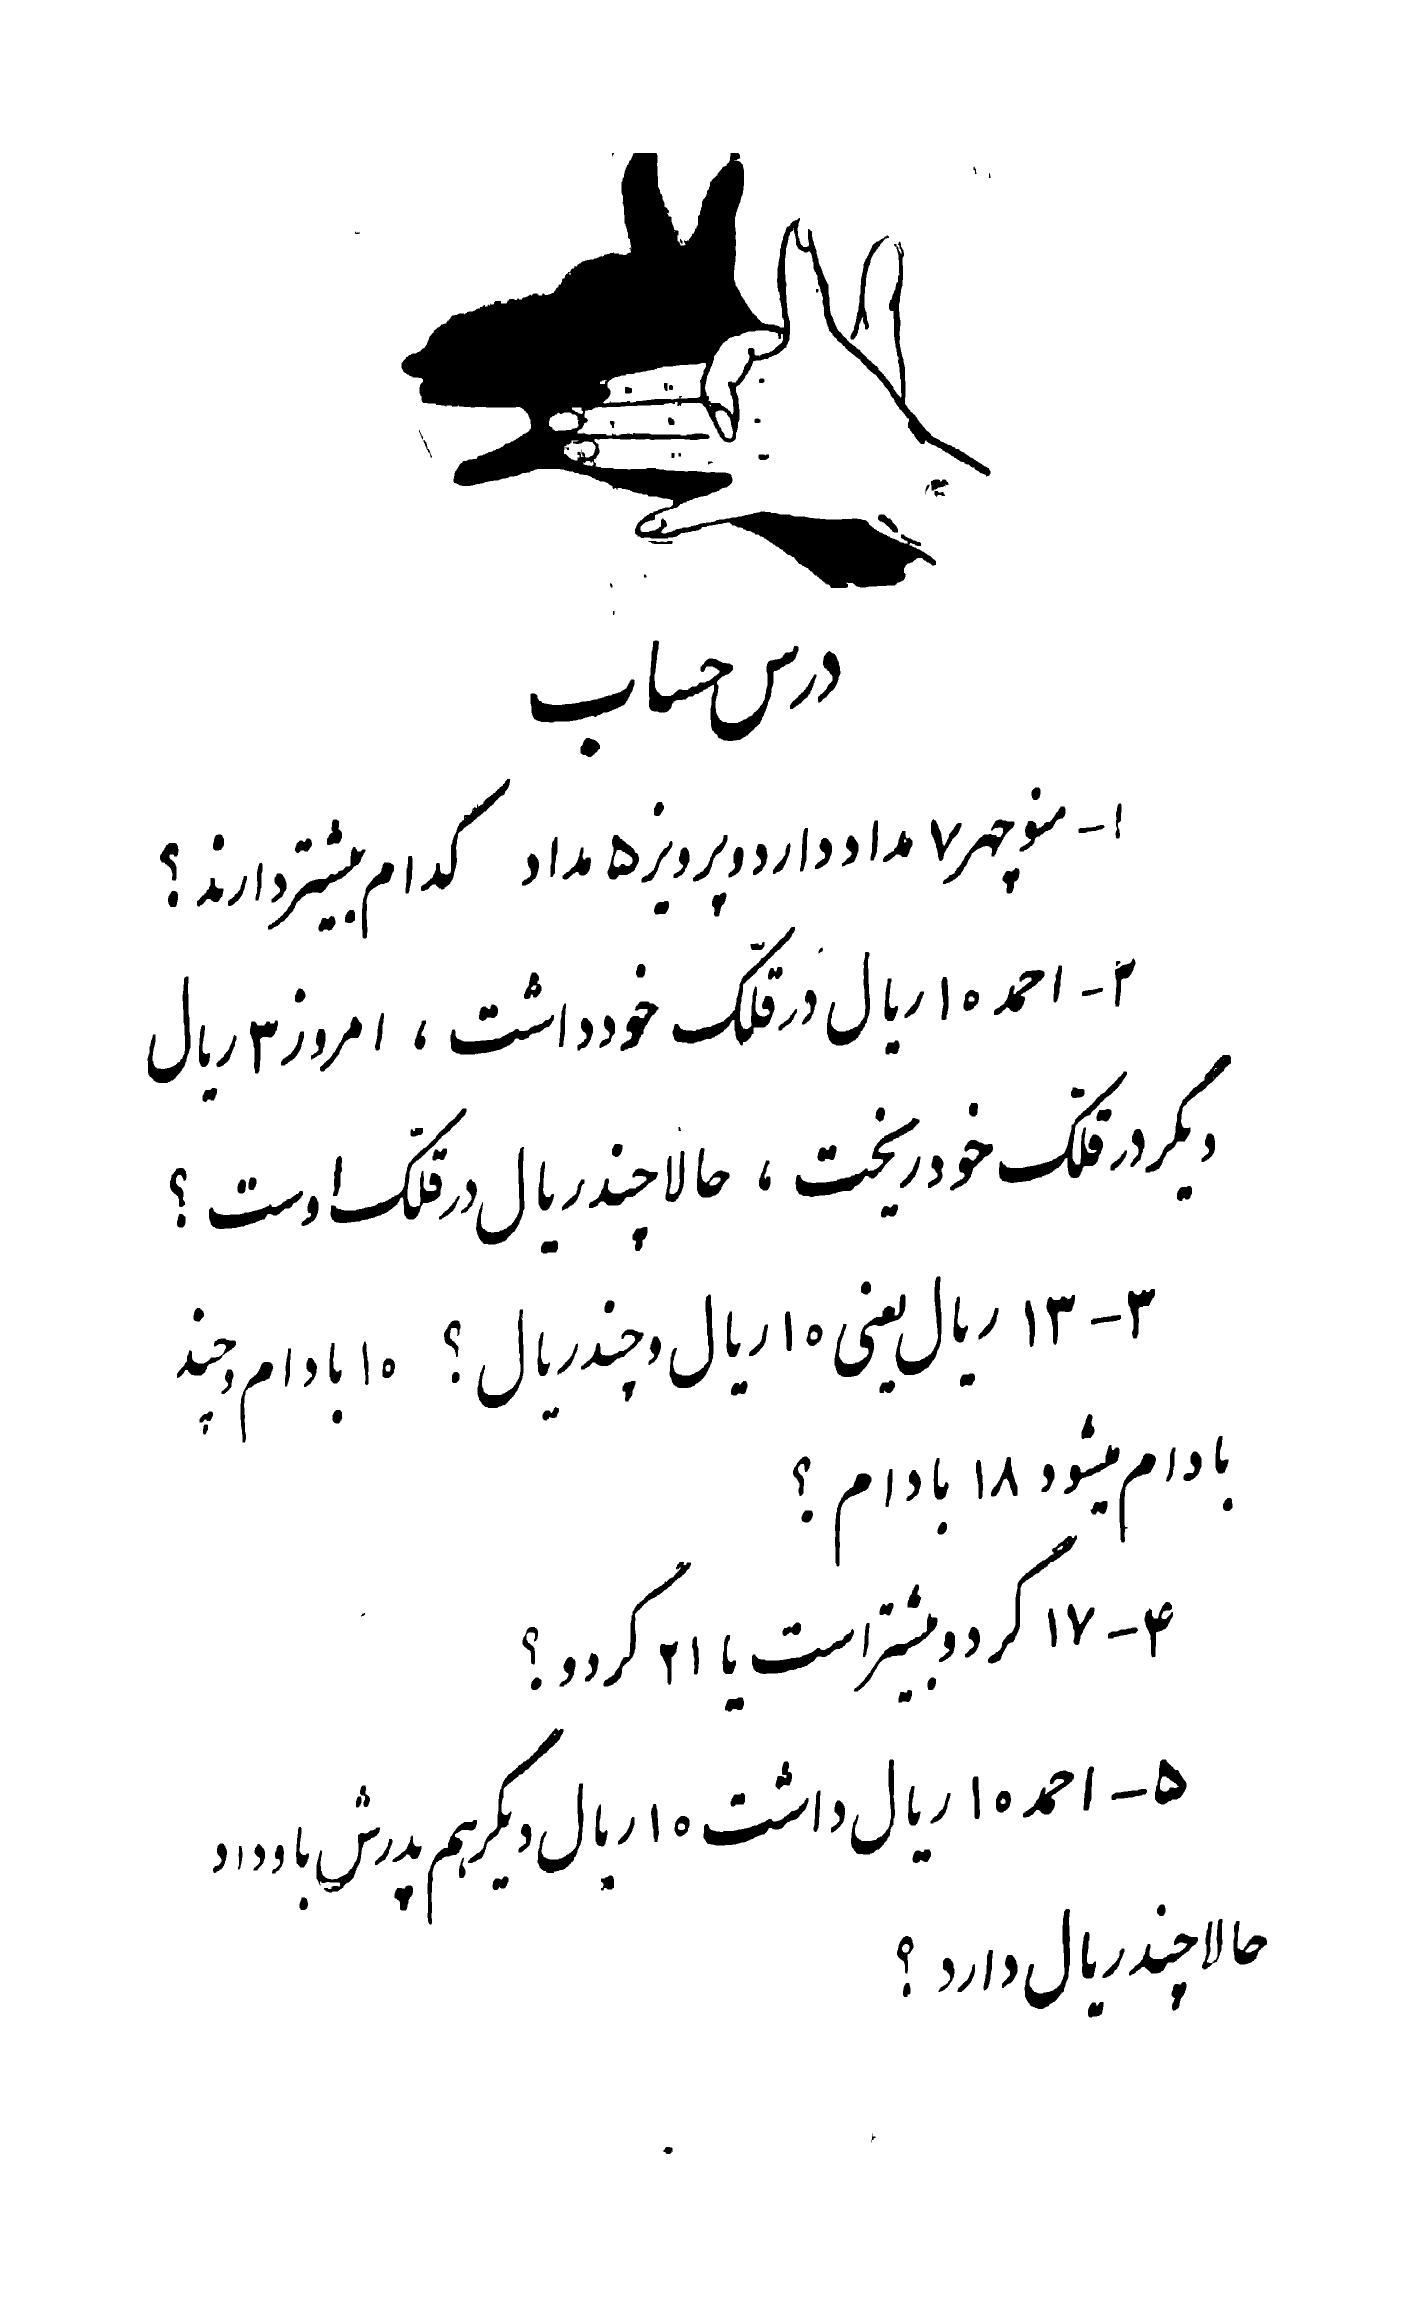 درس حساب
۱- منوچهر ۷ مداد دارد و پرویز ۵ مداد کدام بیشتر دارند ؟
۲- احمد ۱۰ ریال در قلّک خود داشت ، امروز ۳ ریال
دیگر در قلّک خود ریخت ، حالا چند ریال در قلّک اوست ؟
۳- ۱۳ ریال یعنی ۱۰ ریال و چند ریال ؟ ۱۰ بادام و چند
بادام میشود ۱۸ بادام ؟
۴- ۱۷ گردو بیشتر است یا ۲۱ گردو ؟
۵- احمد ۱۰ ریال داشت ۱۰ ریال دیگر هم پدرش باو داد
حالا چند ریال دارد ؟